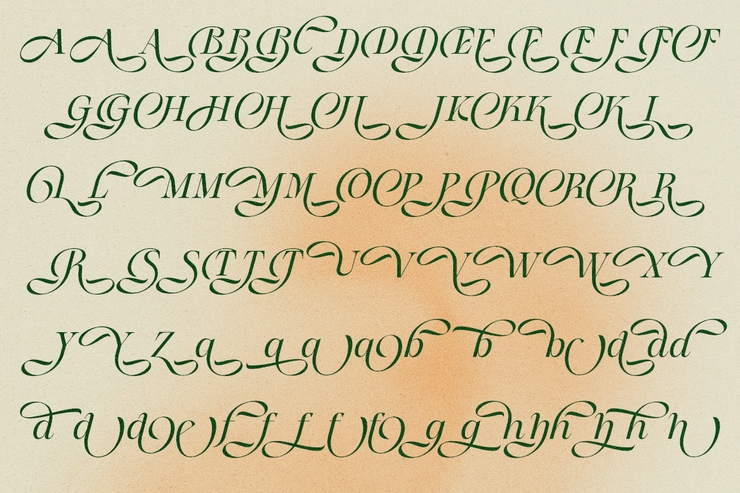 A A A B B B D D D E E E E F F F
G G H H H I J K K K K L
L L M M M M O P P P Q R R R
R S S T T T U V V W W X Y
Y Y Z a a a a b b b c d d d
d d d e f f f f f g g h h h h h h